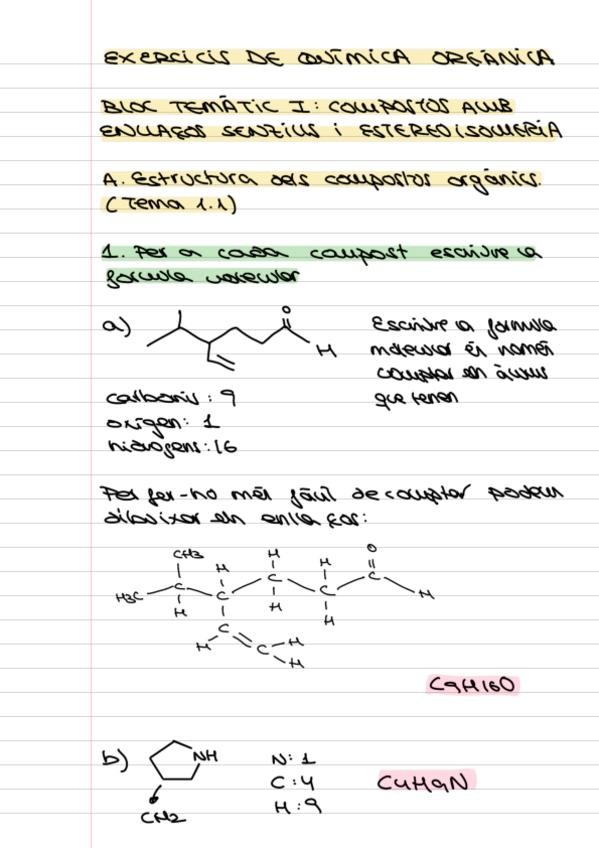 EXERCICIS DE QUÍMICA ORGÀNICA
BLOC TEMÀTIC I: COMPOSTOS AMB
ENLLAÇOS SENZILLS i ESTEREOISOMERIA
A. Estructura dels compostos orgànics.
(Tema 1.1)
1. Per a cada compost escriure la
fórmula molecular
a)
O
H
Escriure la fórmula
molecular és només
comptar els àtoms
que tenen
carbonis: 9
oxígen: 1
hidrògens: 16
Per fer-ho més fàcil de comptar podem
dibuixar els enllaços:
CH3 H H H O
H3C C C C C C H
H H H
H C C H
H
C9H16O
b)
NH
CH2
N: 1
C: 4
H: 9
C4H9N